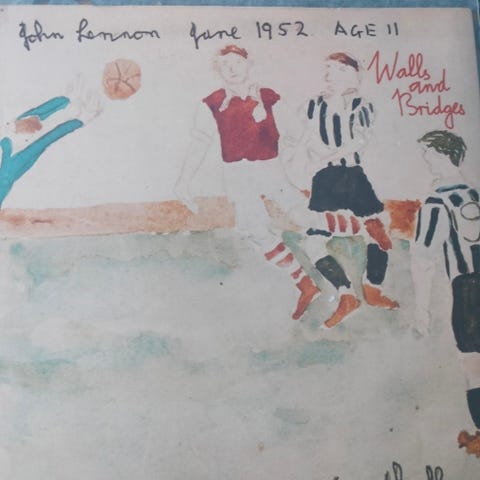 John Lennon June 1952 AGE 11
Walls
and
Bridges